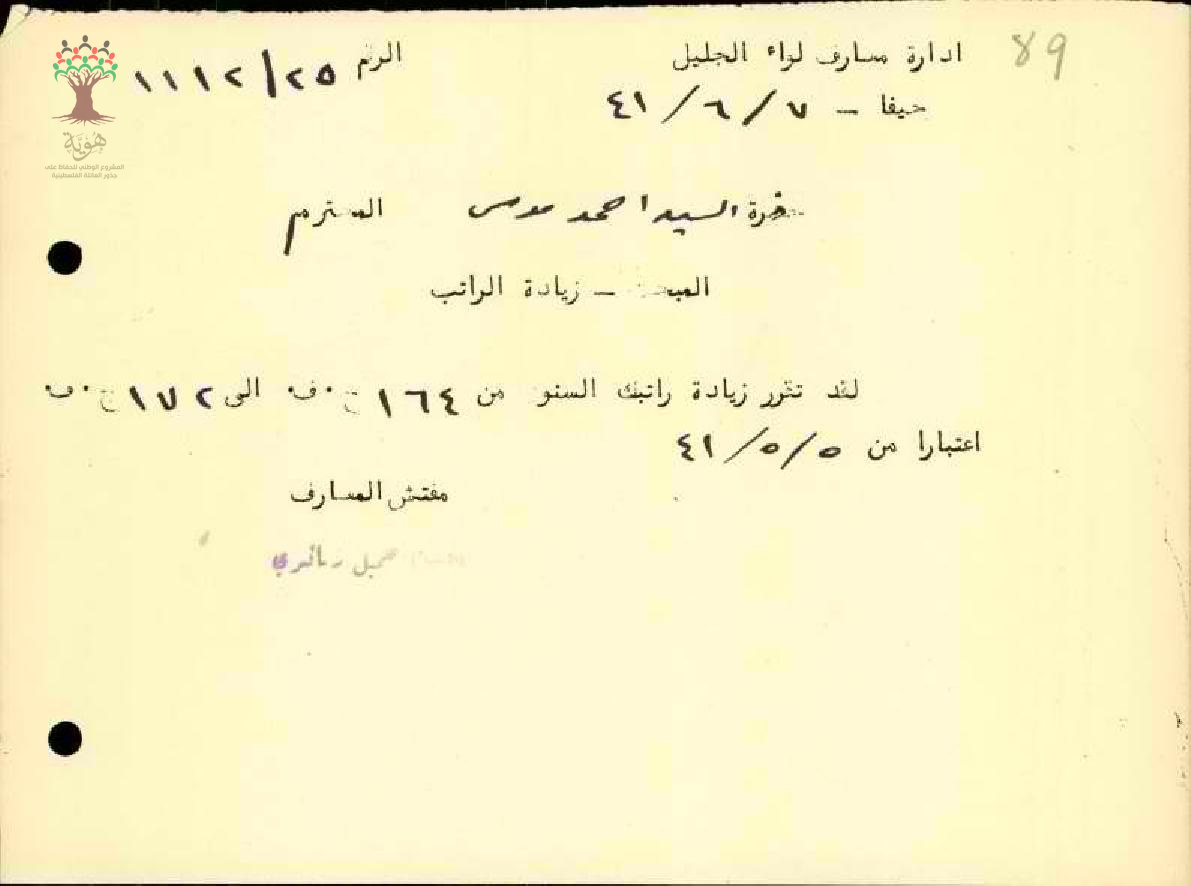 89
ادارة معارف لواء الجليل الرقم ١١١٢/٢٥
حيفا – ٤١/٦/٧
هوية
المشروع الوطني للحفاظ على
جذور العائلة الفلسطينية
حضرة السيد احمد موسى المحترم
المبحث – زيادة الراتب
لقد تقرر زيادة راتبك السنو من ١٦٤ ج.ف. الى ١٧٢ ج.ف.
اعتبارا من ٤١/٥/٥
مفتش المعارف
جميل